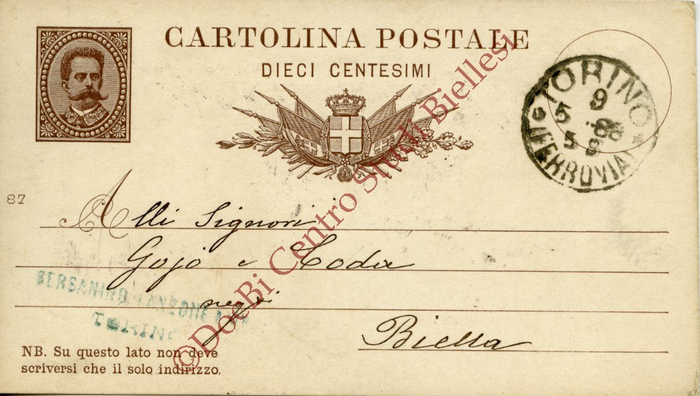 CARTOLINA POSTALE
DIECI CENTESIMI
TORINO
9
5 88
5 S
(FERROVIA)
87
Alli Signori
Gojo e Coda
negti
Biella
BERSANINO
TORINO
NB. Su questo lato non deve
scriversi che il solo indirizzo.
©DocBi Centro Studi Biellesi